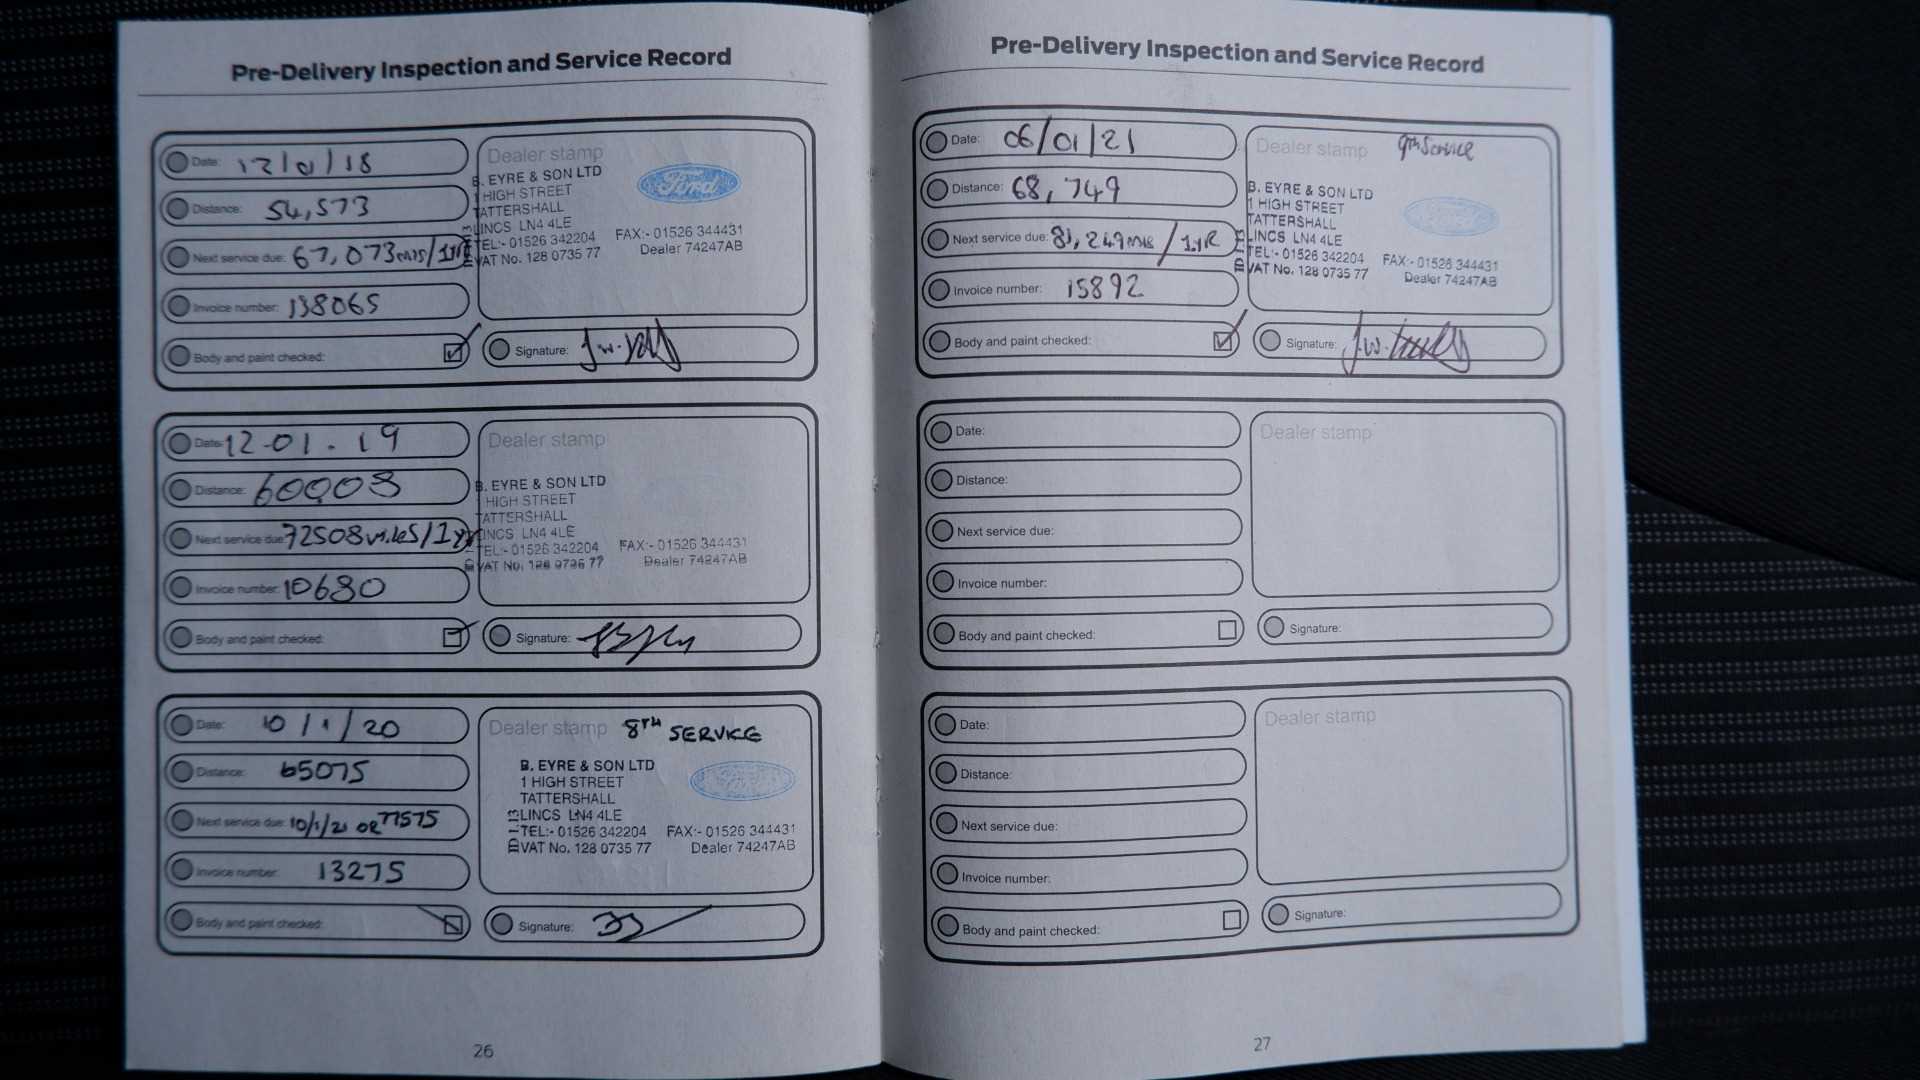 Pre-Delivery Inspection and Service Record
Date: 12/01/18
Distance: 54,573
Next service due: 67,073mls/1YR
Invoice number: 138065
Body and paint checked:
Dealer stamp
B. EYRE & SON LTD
1 HIGH STREET
TATTERSHALL
LINCS LN4 4LE
TEL:- 01526 342204 FAX:- 01526 344431
VAT No. 128 0735 77 Dealer 74247AB
Ford
Signature:
Date: 12-01-19
Distance: 60008
Next service due: 72508 miles/1yr
Invoice number: 10680
Body and paint checked:
Dealer stamp
B. EYRE & SON LTD
HIGH STREET
TATTERSHALL
LINCS LN4 4LE
TEL:- 01526 342204 FAX:- 01526 344431
VAT No. 128 0735 77 Dealer 74247AB
Signature:
Date: 10/1/20
Distance: 65075
Next service due: 10/1/21 OR 77575
Invoice number: 13275
Body and paint checked:
Dealer stamp 8TH SERVICE
B. EYRE & SON LTD
1 HIGH STREET
TATTERSHALL
LINCS LN4 4LE
TEL:- 01526 342204 FAX:- 01526 344431
VAT No. 128 0735 77 Dealer 74247AB
Signature:
26
Pre-Delivery Inspection and Service Record
Date: 06/01/21
Distance: 68,749
Next service due: 81,249mls/1YR
Invoice number: 15892
Body and paint checked:
Dealer stamp 9th Service
B. EYRE & SON LTD
1 HIGH STREET
TATTERSHALL
LINCS LN4 4LE
TEL:- 01526 342204 FAX:- 01526 344431
VAT No. 128 0735 77 Dealer 74247AB
Signature:
Date:
Distance:
Next service due:
Invoice number:
Body and paint checked:
Dealer stamp
Signature:
Date:
Distance:
Next service due:
Invoice number:
Body and paint checked:
Dealer stamp
Signature:
27